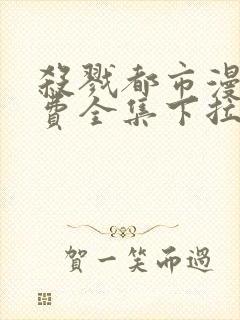 殺戮都市漫
費全集下拉
賀一笑而過